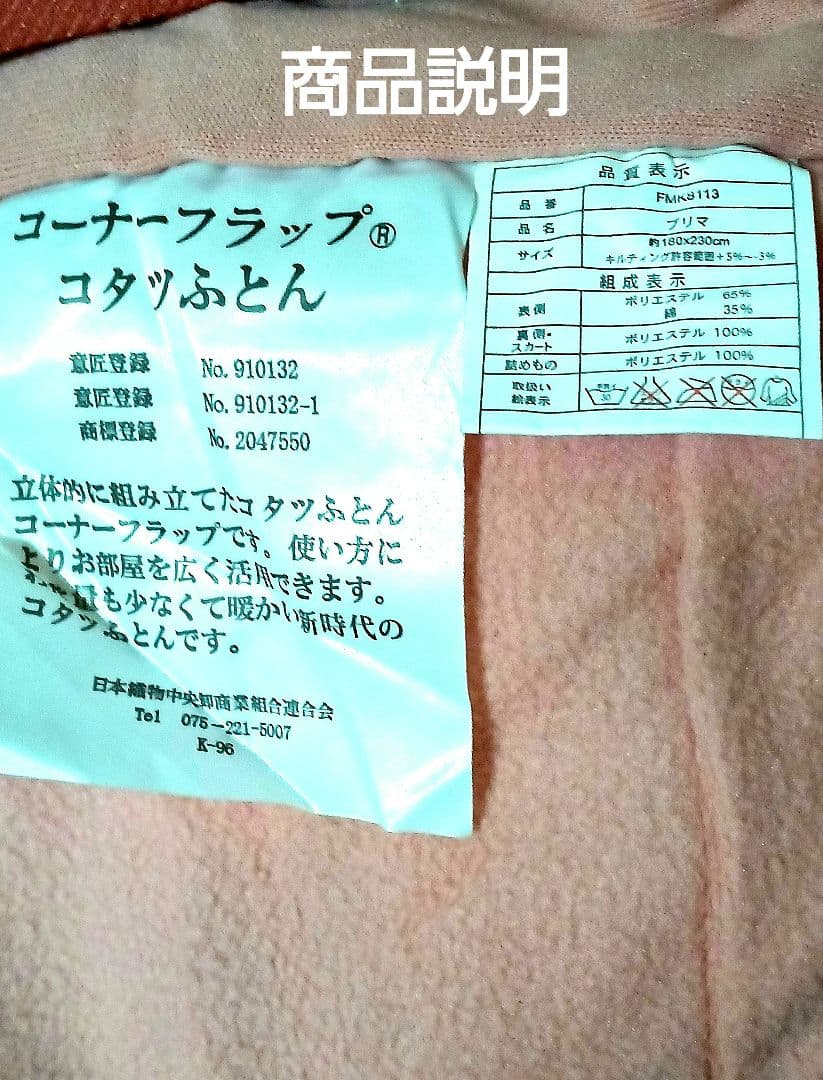 商品説明
コーナーフラップ®
コタツふとん
意匠登録 No. 910132
意匠登録 No. 910132-1
商標登録 No. 2047550
立体的に組み立てたコタツふとん
コーナーフラップです。使い方に
よりお部屋を広く活用できます。
量も少なくて暖かい新時代の
コタツふとんです。
日本織物中央卸商業組合連合会
Tel 075-221-5007
K-96
品質表示
品番 FMK8113
品名 プリマ
サイズ 約180x230cm
キルティング許容範囲+5%~-3%
組成表示
表側 ポリエステル 65%
綿 35%
裏側・スカート ポリエステル 100%
詰めもの ポリエステル 100%
取扱い
絵表示